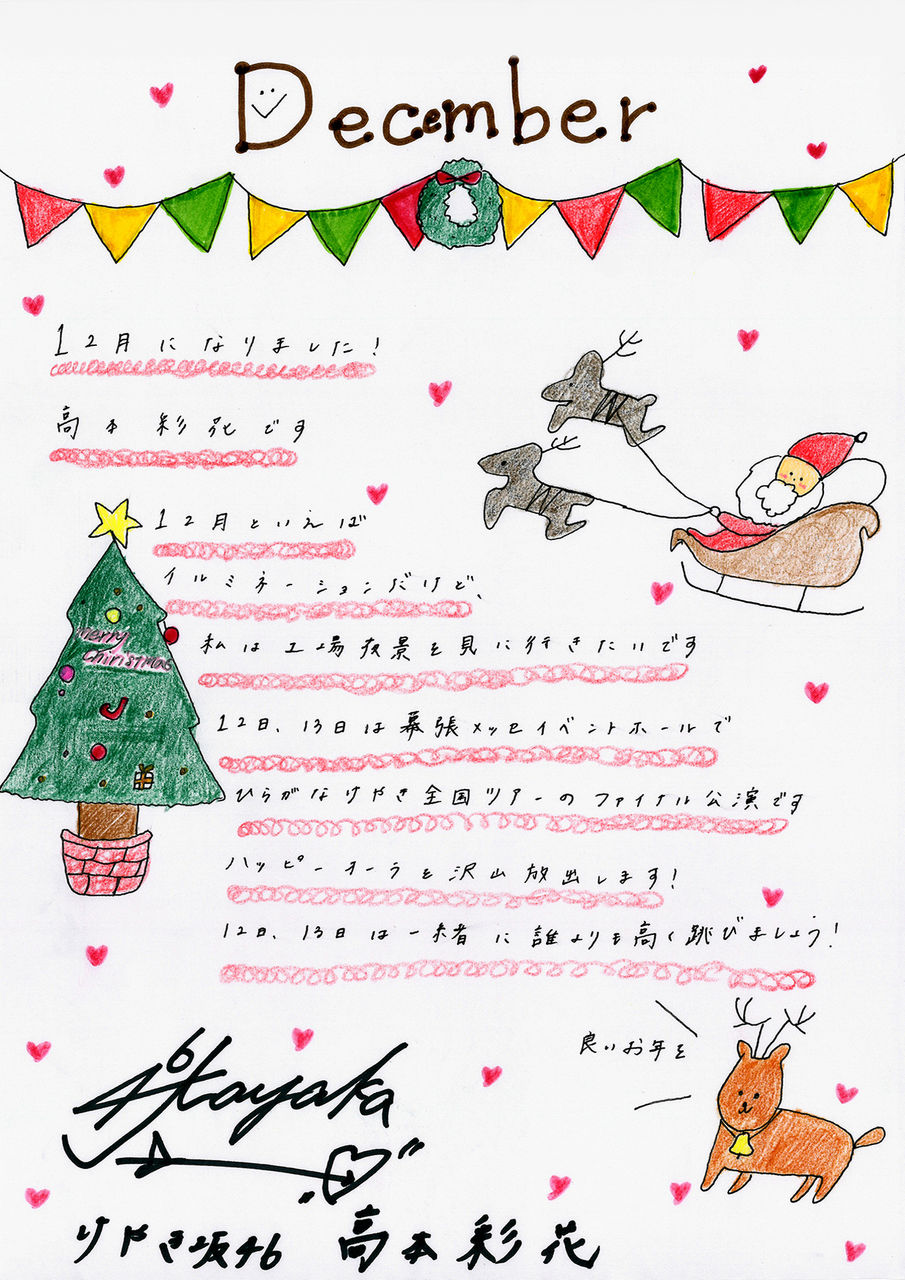 December
12月になりました!
高本彩花です
12月といえば
イルミネーションだけど、
私は工場夜景を見に行きたいです
merry
Chiristmas
12日、13日は幕張メッセイベントホールで
ひらがなけやき全国ツアーのファイナル公演です
ハッピーオーラを沢山放出します!
12日、13日は一緒に誰よりも高く跳びましょう!
良いお年を
けやき坂46 高本彩花